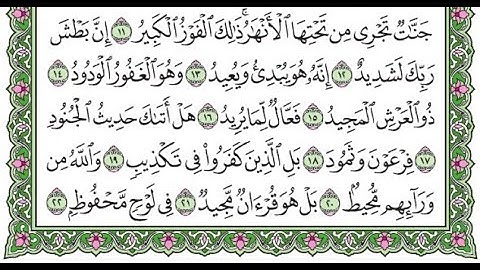 جَنَّٰتٌ تَجْرِى مِن تَحْتِهَا ٱلْأَنْهَٰرُ ۚ ذَٰلِكَ ٱلْفَوْزُ ٱلْكَبِيرُ ١١ إِنَّ بَطْشَ
رَبِّكَ لَشَدِيدٌ ١٢ إِنَّهُۥ هُوَ يُبْدِئُ وَيُعِيدُ ١٣ وَهُوَ ٱلْغَفُورُ ٱلْوَدُودُ ١٤
ذُو ٱلْعَرْشِ ٱلْمَجِيدُ ١٥ فَعَّالٌ لِّمَا يُرِيدُ ١٦ هَلْ أَتَىٰكَ حَدِيثُ ٱلْجُنُودِ
١٧ فِرْعَوْنَ وَثَمُودَ ١٨ بَلِ ٱلَّذِينَ كَفَرُوا۟ فِى تَكْذِيبٍ ١٩ وَٱللَّهُ مِن
وَرَآئِهِم مُّحِيطٌۢ ٢٠ بَلْ هُوَ قُرْءَانٌ مَّجِيدٌ ٢١ فِى لَوْحٍ مَّحْفُوظٍۭ ٢٢